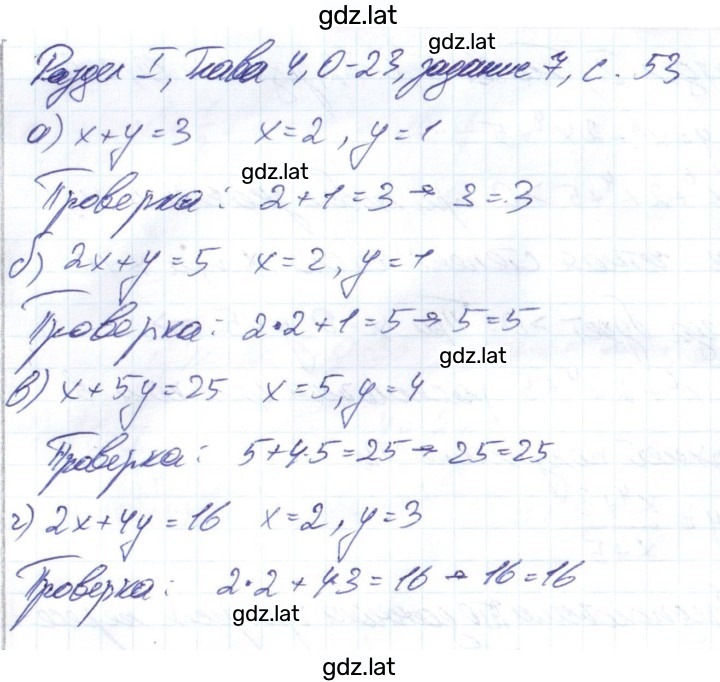 gdz.lat
gdz.lat
Раздел I, Глава 4, О-23, задание 7, с. 53
а) x+y=3 x=2, y=1
gdz.lat
Проверка: 2+1=3 → 3=3
б) 2x+y=5 x=2, y=1
Проверка: 2·2+1=5 → 5=5
gdz.lat
в) x+5y=25 x=5, y=4
Проверка: 5+4·5=25 → 25=25
г) 2x+4y=16 x=2, y=3
Проверка: 2·2+4·3=16 → 16=16
gdz.lat
gdz.lat